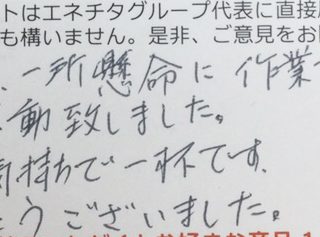 トはエネチタグループ代表に直接
も構いません。是非、ご意見をお
一所懸命に作業
動致しました。
気持ちで一杯です。
うございました。